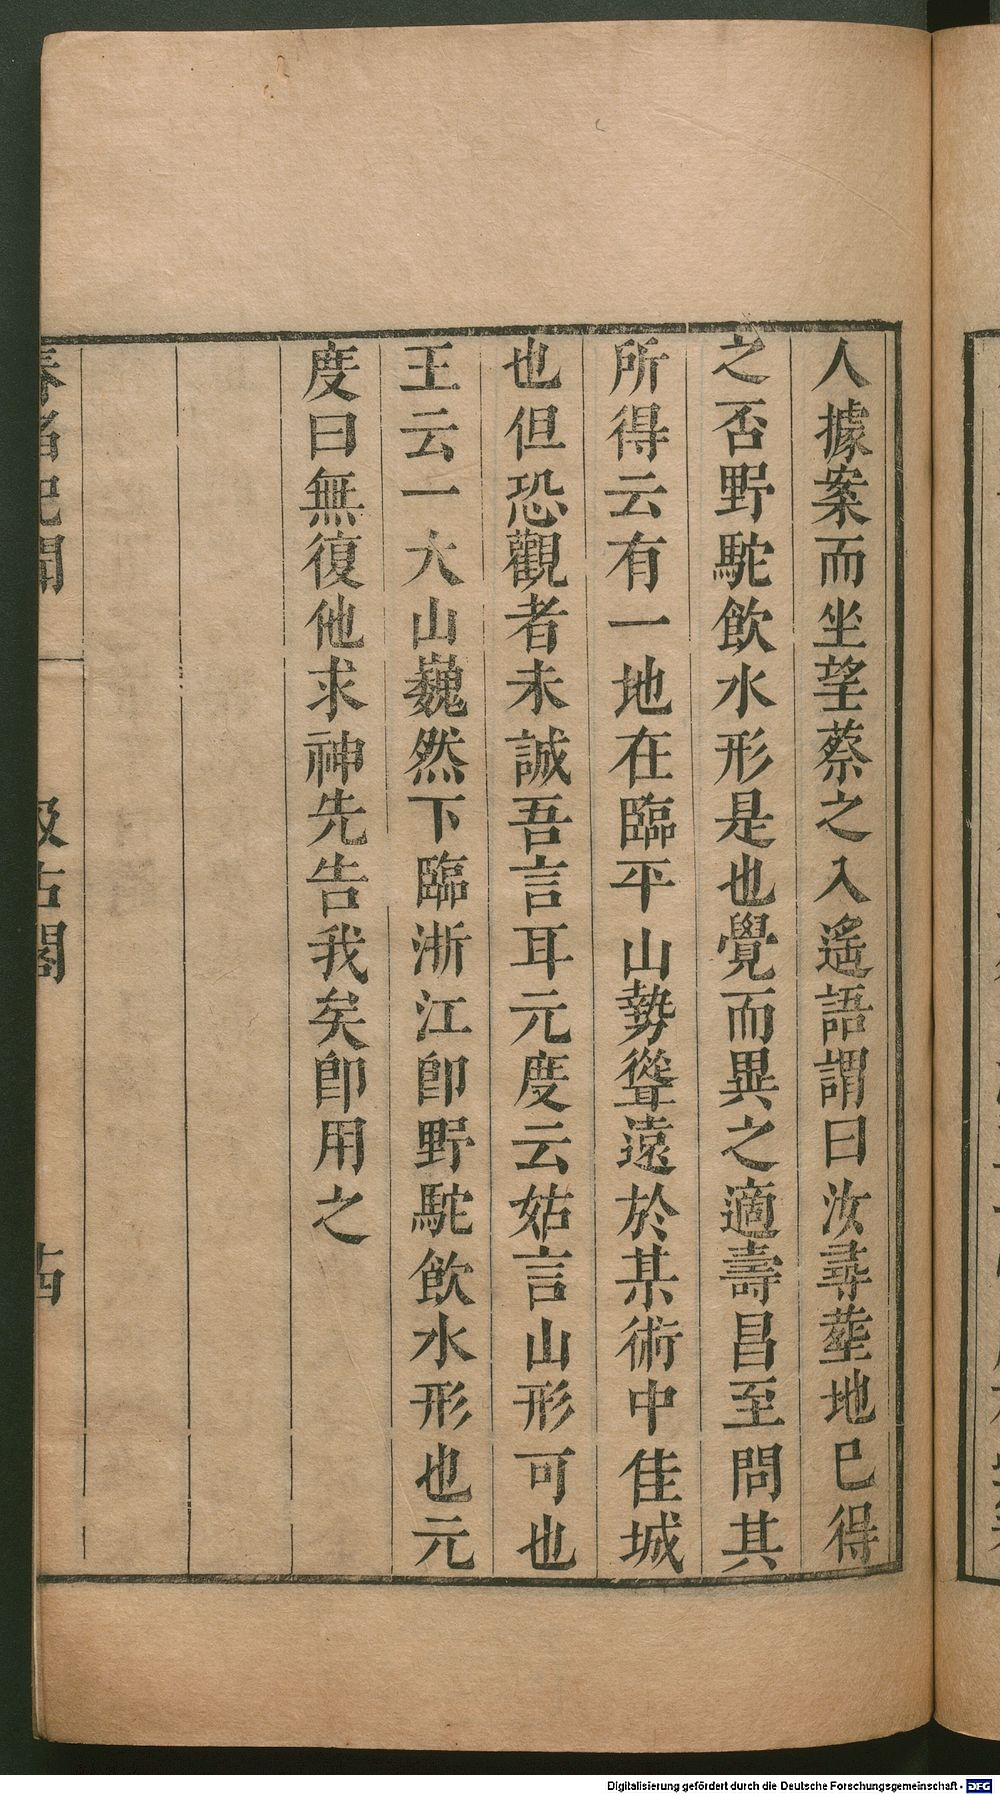 人據案而坐望蔡之入遙語謂曰汝尋塟地已得
之否野駝飲水形是也覺而異之適壽昌至問其
所得云有一地在臨平山勢聳遠於某術中佳城
也但恐觀者未誠吾言耳元度云姑言山形可也
王云一大山巍然下臨浙江卽野駝飲水形也元
度曰無復他求神先告我矣卽用之
春渚紀聞 汲古閣
Digitalisierung gefördert durch die Deutsche Forschungsgemeinschaft - DFG